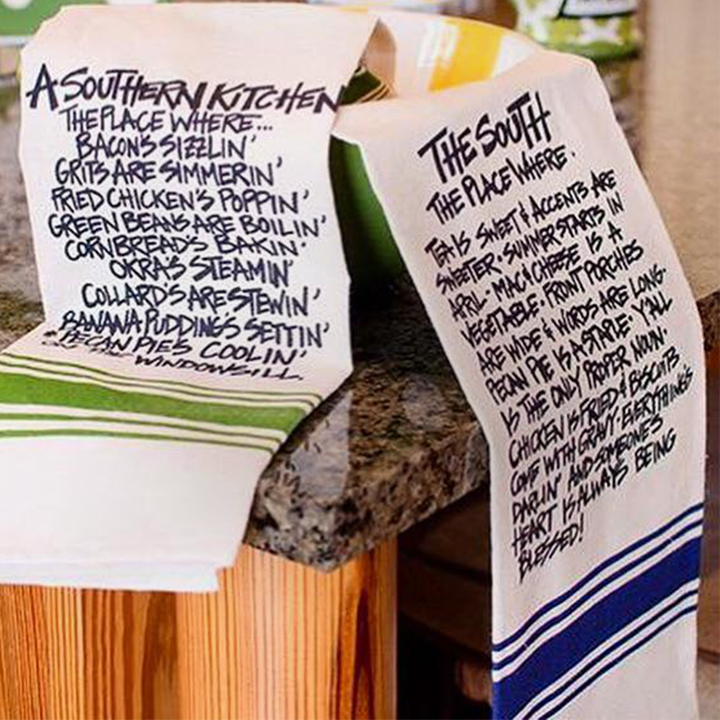 A SOUTHERN KITCHEN
THE PLACE WHERE...
BACON'S SIZZLIN'
GRITS ARE SIMMERIN'
FRIED CHICKEN'S POPPIN'
GREEN BEANS ARE BOILIN'
CORNBREAD'S BAKIN'
OKRA'S STEAMIN'
COLLARD'S ARE STEWIN'
BANANA PUDDING'S SETTIN'
& PECAN PIE'S COOLIN'
ON THE WINDOWSILL.
THE SOUTH
THE PLACE WHERE.
TEA IS SWEET & ACCENTS ARE
SWEETER. SUMMER STARTS IN
APRIL. MAC & CHEESE IS A
VEGETABLE. FRONT PORCHES
ARE WIDE & WORDS ARE LONG.
PECAN PIE IS A STAPLE. Y'ALL
IS THE ONLY PROPER NOUN.
CHICKEN IS FRIED & BISCUITS
COME WITH GRAVY. EVERYTHING'S
DARLIN' AND SOMEONE'S
HEART IS ALWAYS BEING
BLESSED!